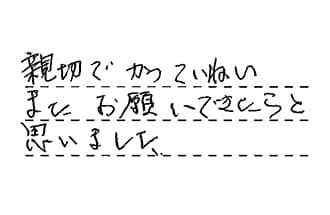 親切でかつていねい
またお願いできたらと
思いました、